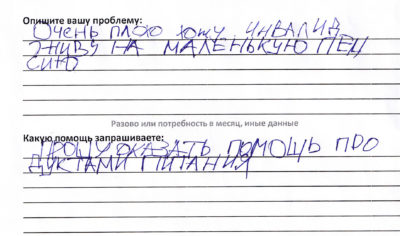 Опишите вашу проблему:
ОЧЕНЬ ПЛОХО ХОЖУ ИНВАЛИД
ЖИВУ НА МАЛЕНЬКУЮ ПЕН
СИЮ
Разово или потребность в месяц, иные данные
Какую помощь запрашиваете:
ПРОШУ ОКАЗАТЬ ПОМОЩЬ ПРО
ДУКТАМИ ПИТАНИЯ